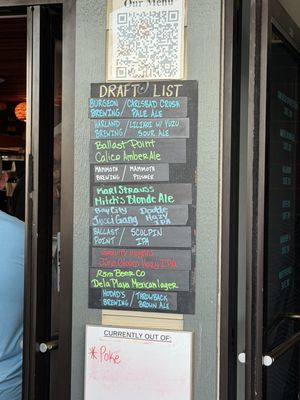 Our Menu
DRAFT LIST
BURGEON / CARLSBAD CRUSH
BREWING / PALE ALE
HARLAND / LILIKOI W YUZU
BREWING / SOUR ALE
Ballast Point
Calico Amber Ale
MAMMOTH / MAMMOTH
BREWING / PILSNER
Karl Strauss
Mitch's Blonde Ale
Bay City Double
Juicy Gang Hazy
IPA
BALLAST / SCULPIN
POINT / IPA
Hazy IPA
Beer Co
Dela Playa Mexican Lager
HODAD'S / THROWBACK
BREWING / BROWN ALE
CURRENTLY OUT OF:
*Poke